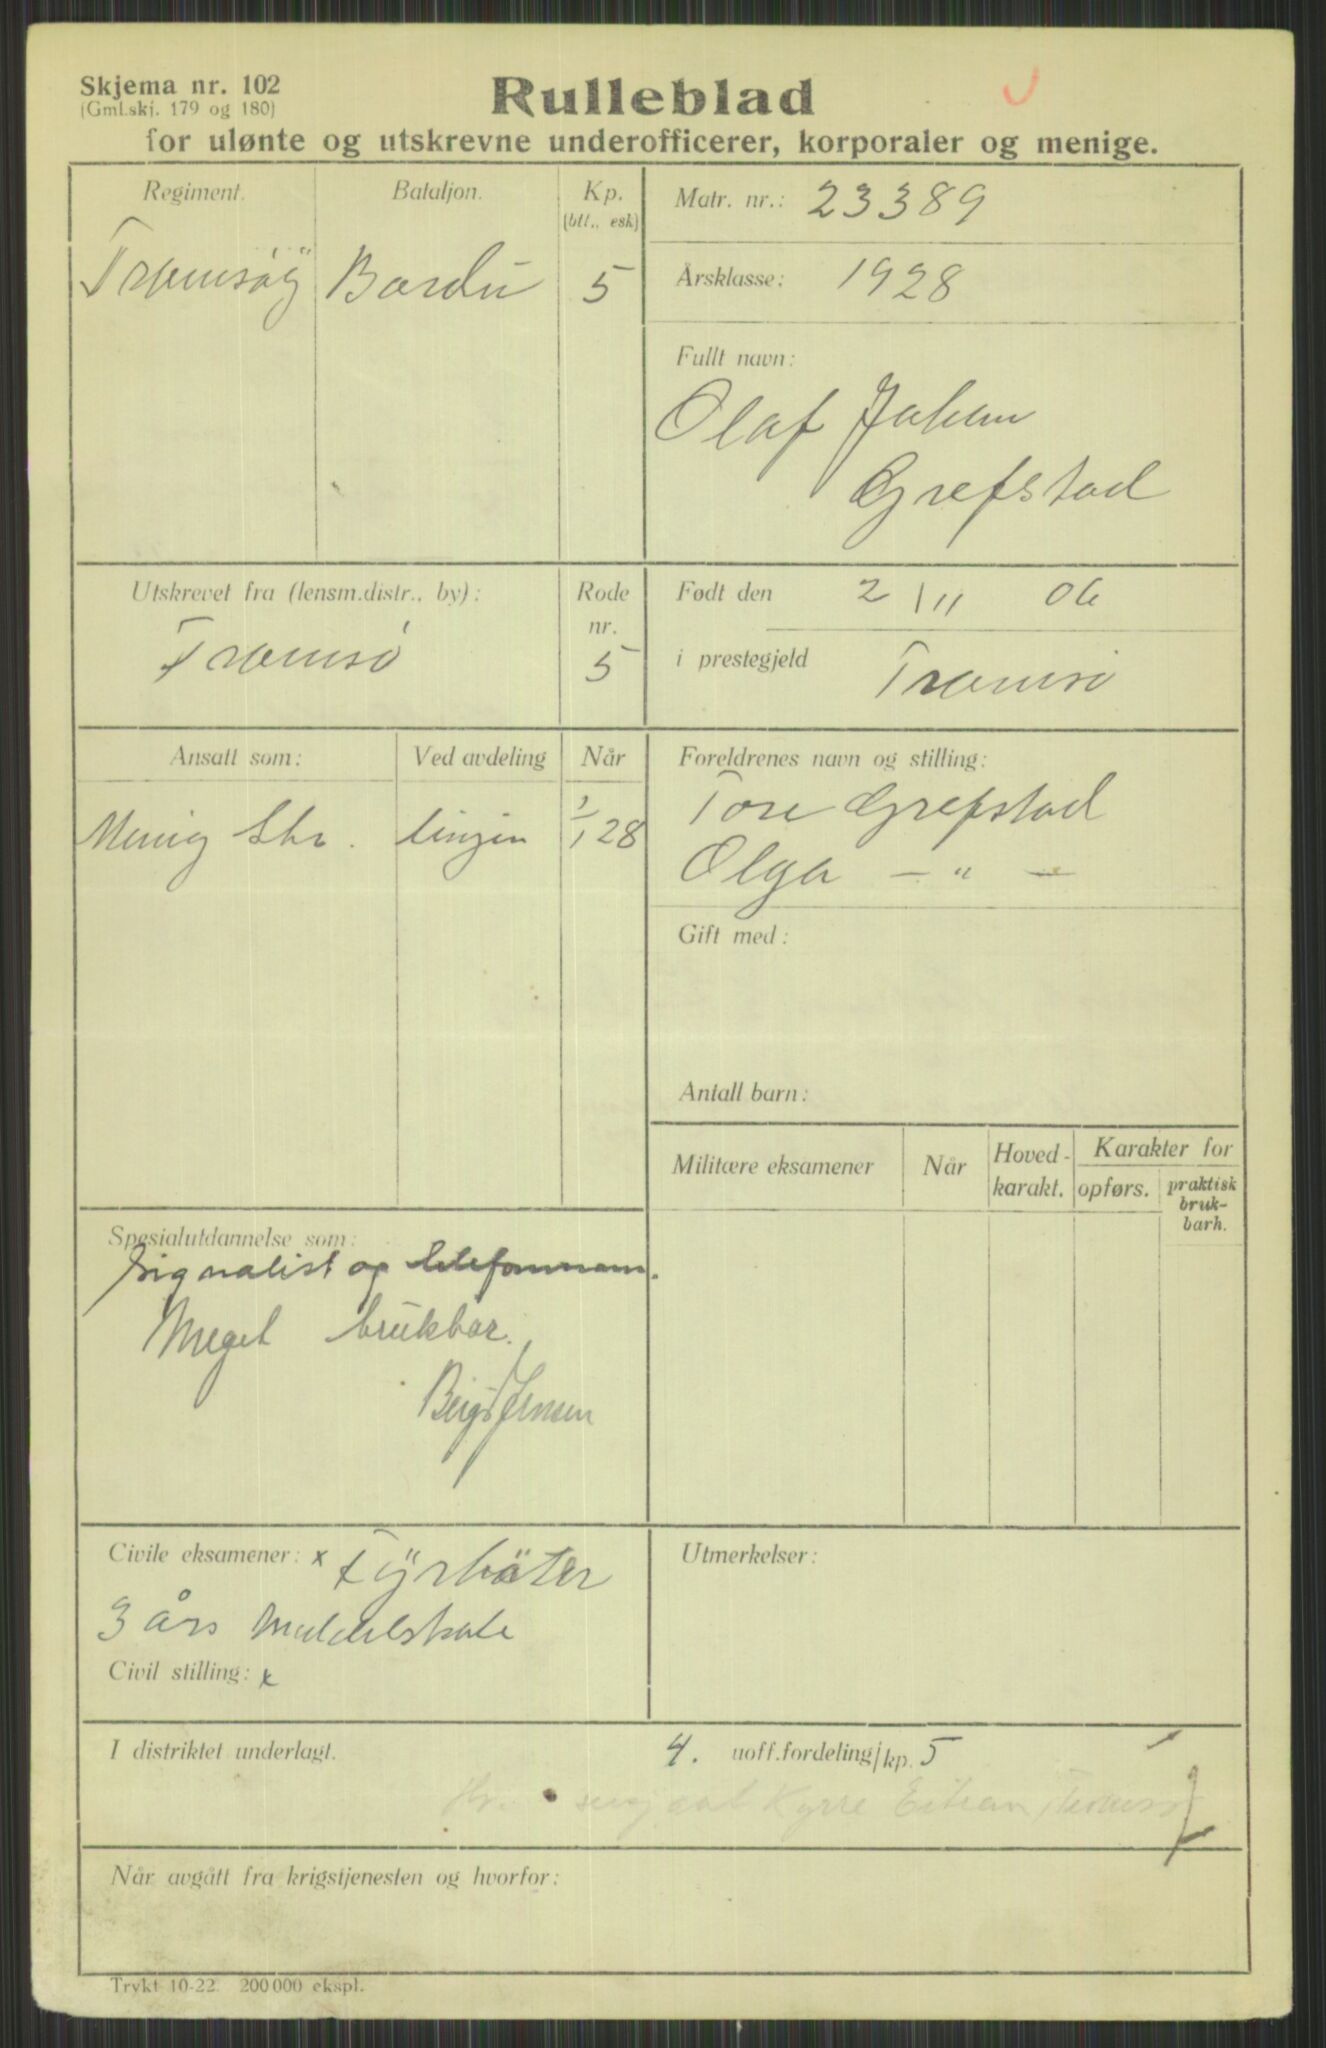 Skjema nr. 102
(Gml.skj. 179 og 180)
Rulleblad
for ulønte og utskrevne underofficerer, korporaler og menige.
Regiment. Bataljon. Kp. (btt., esk)
Bardu 5
Matr. nr.: 23389
Årsklasse: 1928
Fullt navn:
Olaf Johan
Grefstad
Utskrevet fra (lensm.distr., by): Rode nr.
Tromsø 5
Født den 2/11 06
i prestegjeld Tromsø
Ansatt som: Ved avdeling Når
Menig linjen 1/1 28
Foreldrenes navn og stilling:
Tore Grefstad
Olga — " —
Gift med:
Antall barn:
Militære eksamener Når Hoved-karakt. Karakter for
opførs. praktisk bruk-barh.
Spesialutdannelse som:
Signalist og telefonmann.
Meget brukbar.
Jensen
Civile eksamener: x x Fyrbøter
3 års Middelskole
Civil stilling: x
Utmerkelser:
I distriktet underlagt. 4. uoff.fordeling/kp. 5
Kyrre
Når avgått fra krigstjenesten og hvorfor:
Trykt 10-22. 200 000 ekspl.